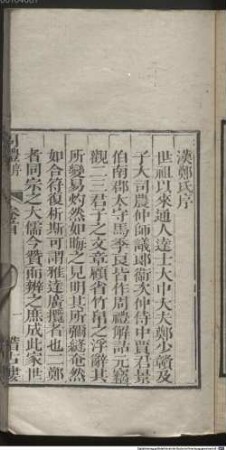 漢鄭氏序
世祖以來通人達士大中大夫鄭少贛及
子大司農仲師議郎衛次仲侍中賈君景
伯南郡太守馬季長皆作周禮解詁元竊
觀二三君子之文章顧省竹帛之浮辭其
所變易灼然如晦之見明其所彌縫奄然
如合符復析斯可謂雅達廣攬者也二鄭
者同宗之大儒今贊而辨之庶成此家世
禮序 卷首